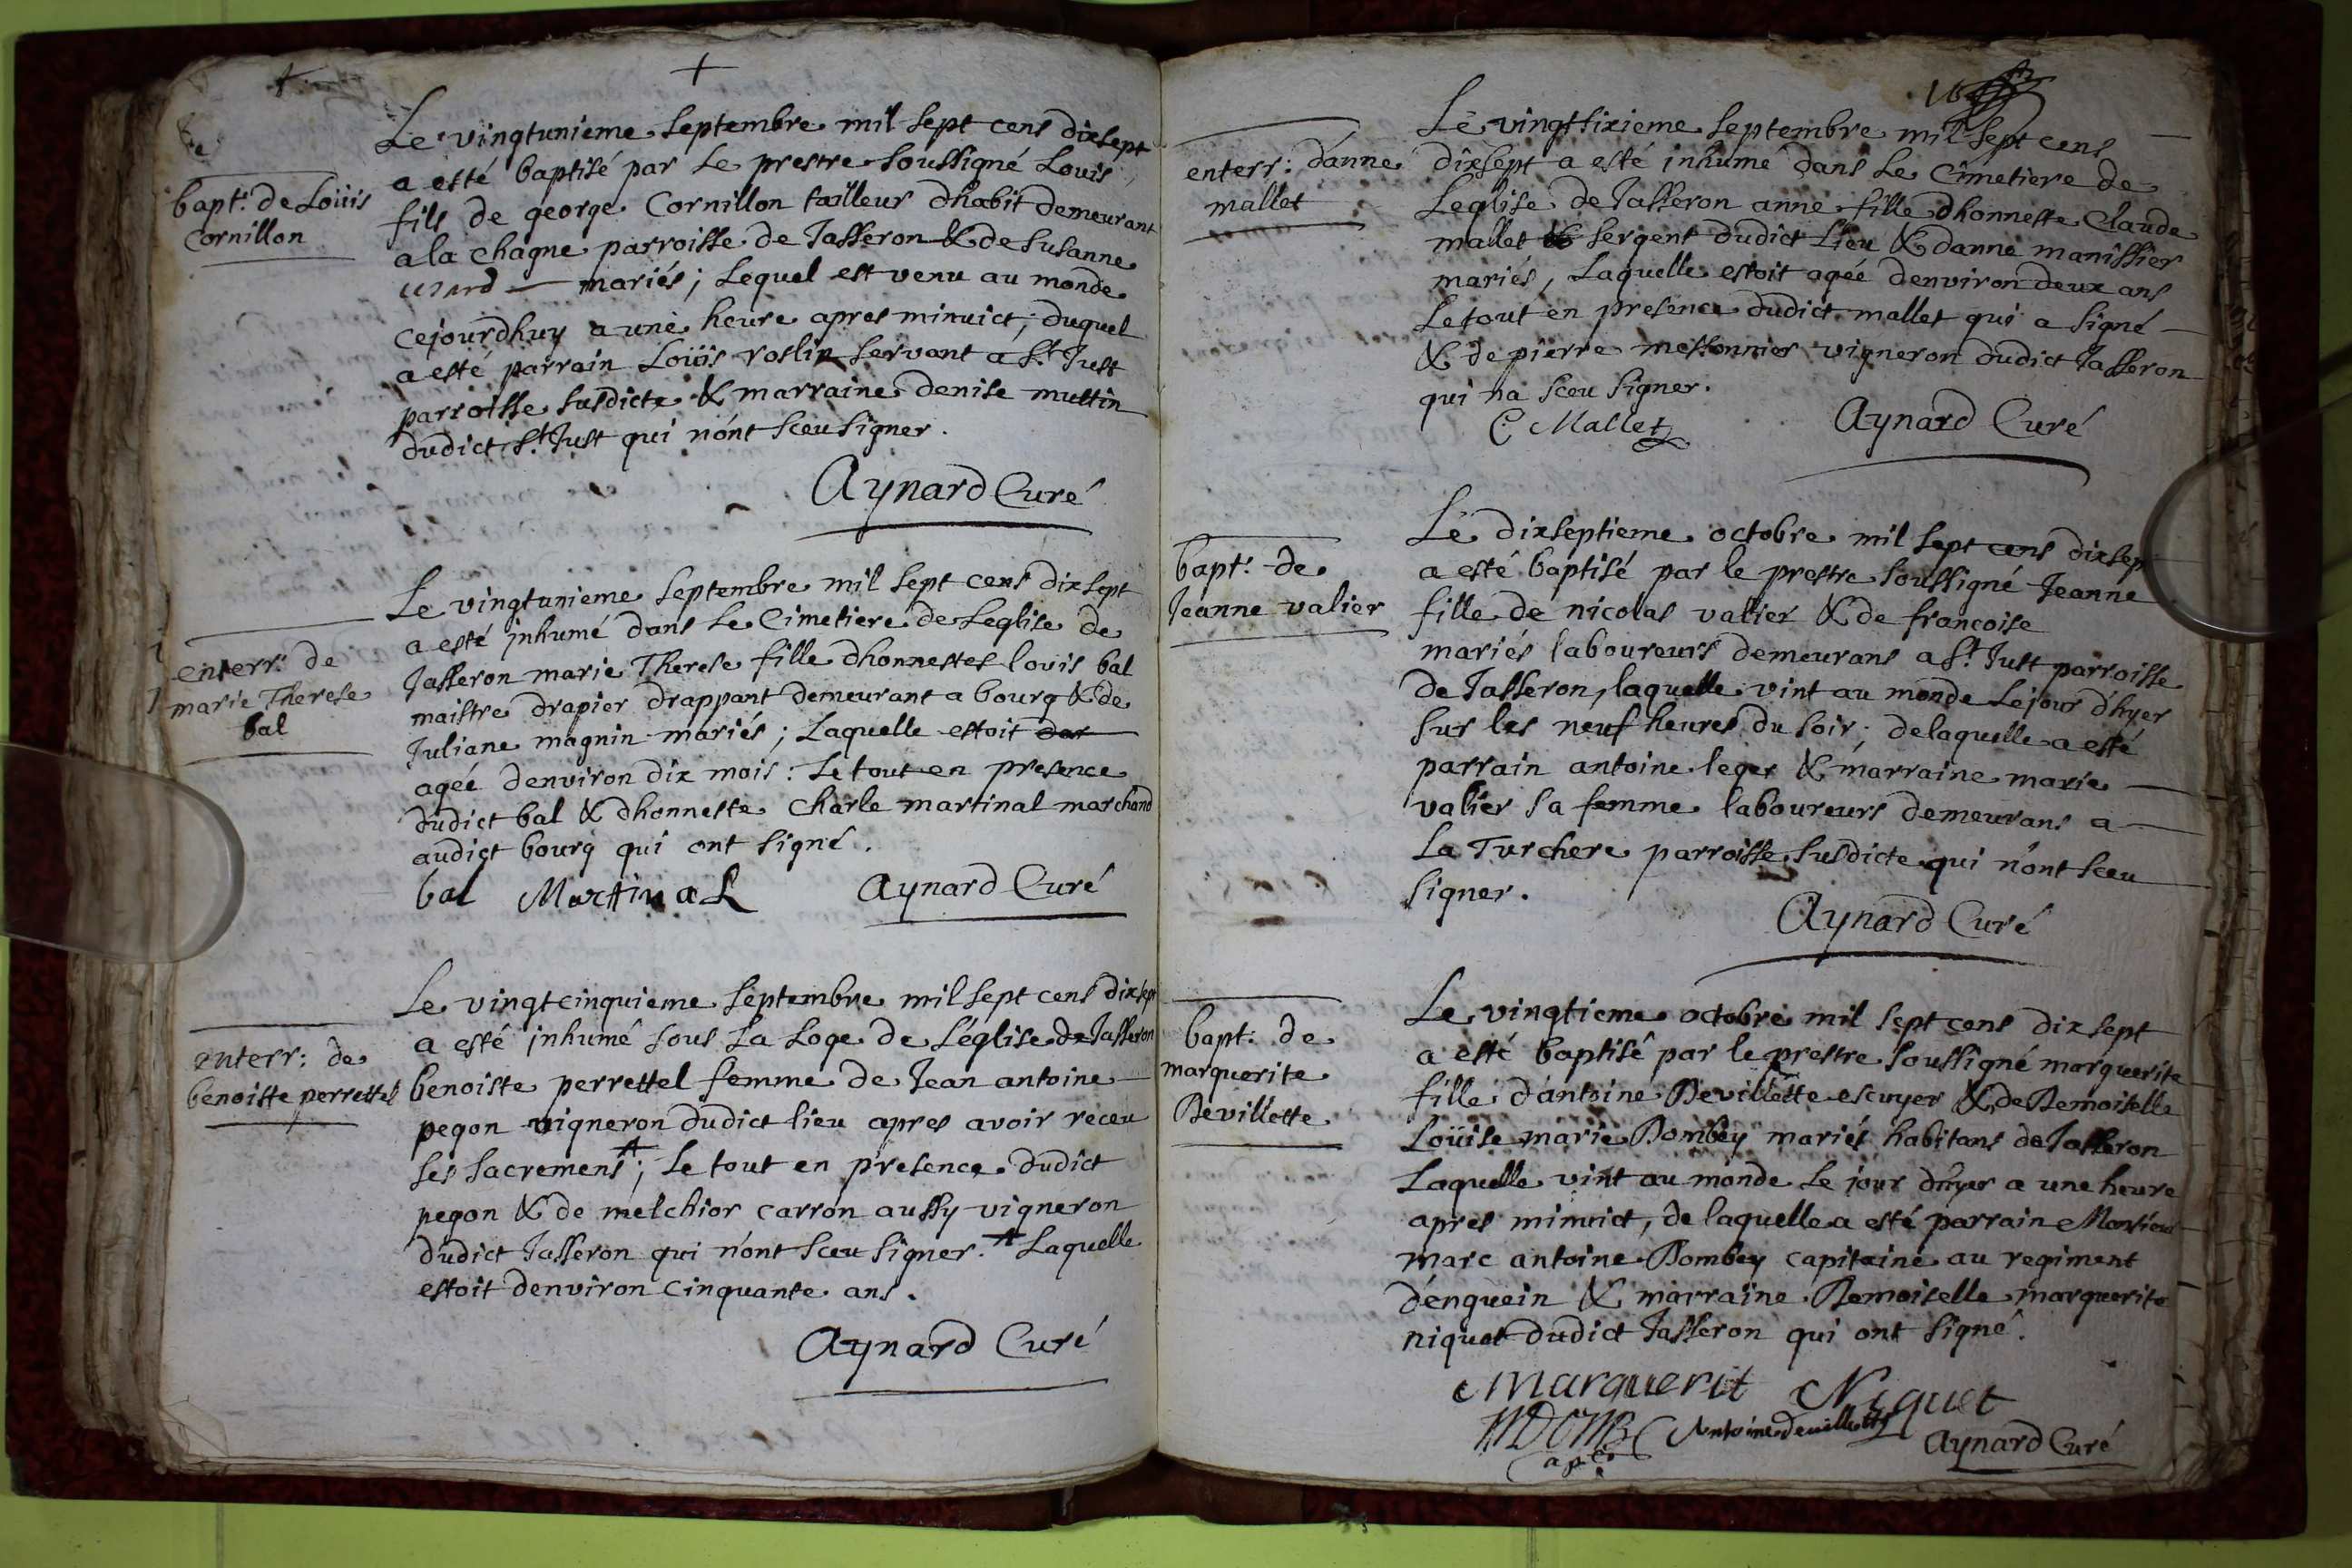 bapt: de Loüis
Cornillon
Le vingtunieme Septembre mil sept cens dixsept
a esté baptisé par Le prestre soussigné Louis
fils de george Cornillon tailleur dhabit demeurant
a la chagne parroisse de Jasseron & de Susanne
mariés; Lequel est venu au monde
cejourdhuy a une heure apres minuict; duquel
a esté parrain Loüis roslin servant a St Just
parroisse susdicte & marraine denise muttin
dudict St Just qui n'ont sceu signer.
Aynard Curé
enterr: de
marie Therese
bal
Le vingtunieme Septembre mil sept cens dixsept
a esté inhumé dans Le Cimetiere de Leglise de
Jasseron marie Therese fille dhonnestes lovis bal
maistre drapier drappant demeurant a bourg & de
Juliane magnin mariés; Laquelle estoit
agée denviron dix mois: Le tout en presence
dudict bal & dhonneste Charle martinal marchand
audict bourg qui ont signé.
bal MartinaL Aynard Curé
enterr: de
benoiste perrettel
Le vingtcinquieme Septembre mil sept cens dixsept
a esté inhumé sous La Loge de L'église de Jasseron
benoiste perrettel femme de Jean antoine
pegon vigneron dudict lieu apres avoir receu
ses sacremens; Le tout en presence dudict
pegon & de melchior carron aussy vigneron
dudict Jasseron qui n'ont sceu signer. Laquelle
estoit denviron cinquante ans.
Aynard Curé
enterr: d'anne
mallet
Le vingtsixieme Septembre mil sept cens
dixsept a esté inhumé dans Le Cimetiere de
Leglise de Jasseron anne fille dhonneste Claude
mallet sergent dudict Lieu & danne manissier
mariés, Laquelle estoit agée denviron deux ans
Le tout en presence dudict mallet qui a signé
& de pierre messonnier vigneron dudict Jasseron
qui na sceu signer.
C Mallet Aynard Curé
bapt: de
Jeanne valier
Le dixseptieme octobre mil sept cens dixsept
a esté baptisé par le prestre soussigné Jeanne
fille de nicolas valier & de francoise
mariés laboureurs demeurans a St Just parroisse
de Jasseron, laquelle vint au monde Le jour d'hyer
sur les neuf heures du soir; delaquelle a esté
parrain antoine leger & marraine marie
valier sa femme laboureurs demeurans a
La Turchere parroisse susdicte qui n'ont sceu
signer.
Aynard Curé
bapt: de
marguerite
Devillette
Le vingtieme octobre mil sept cens dixsept
a esté baptisé par le prestre soussigné marguerite
fille d'antoine Devillette escuyer & de Demoiselle
Loüise marie Dombey mariés habitans de Jasseron
Laquelle vint au monde Le jour d'hyer a une heure
apres minuict, de laquelle a esté parrain Monsieur
marc antoine Dombey capitaine au regiment
d'enguein & marraine Demoiselle marguerite
niquet dudict Jasseron qui ont signé.
Marguerit Niquet
Antoine Devillette Aynard Curé